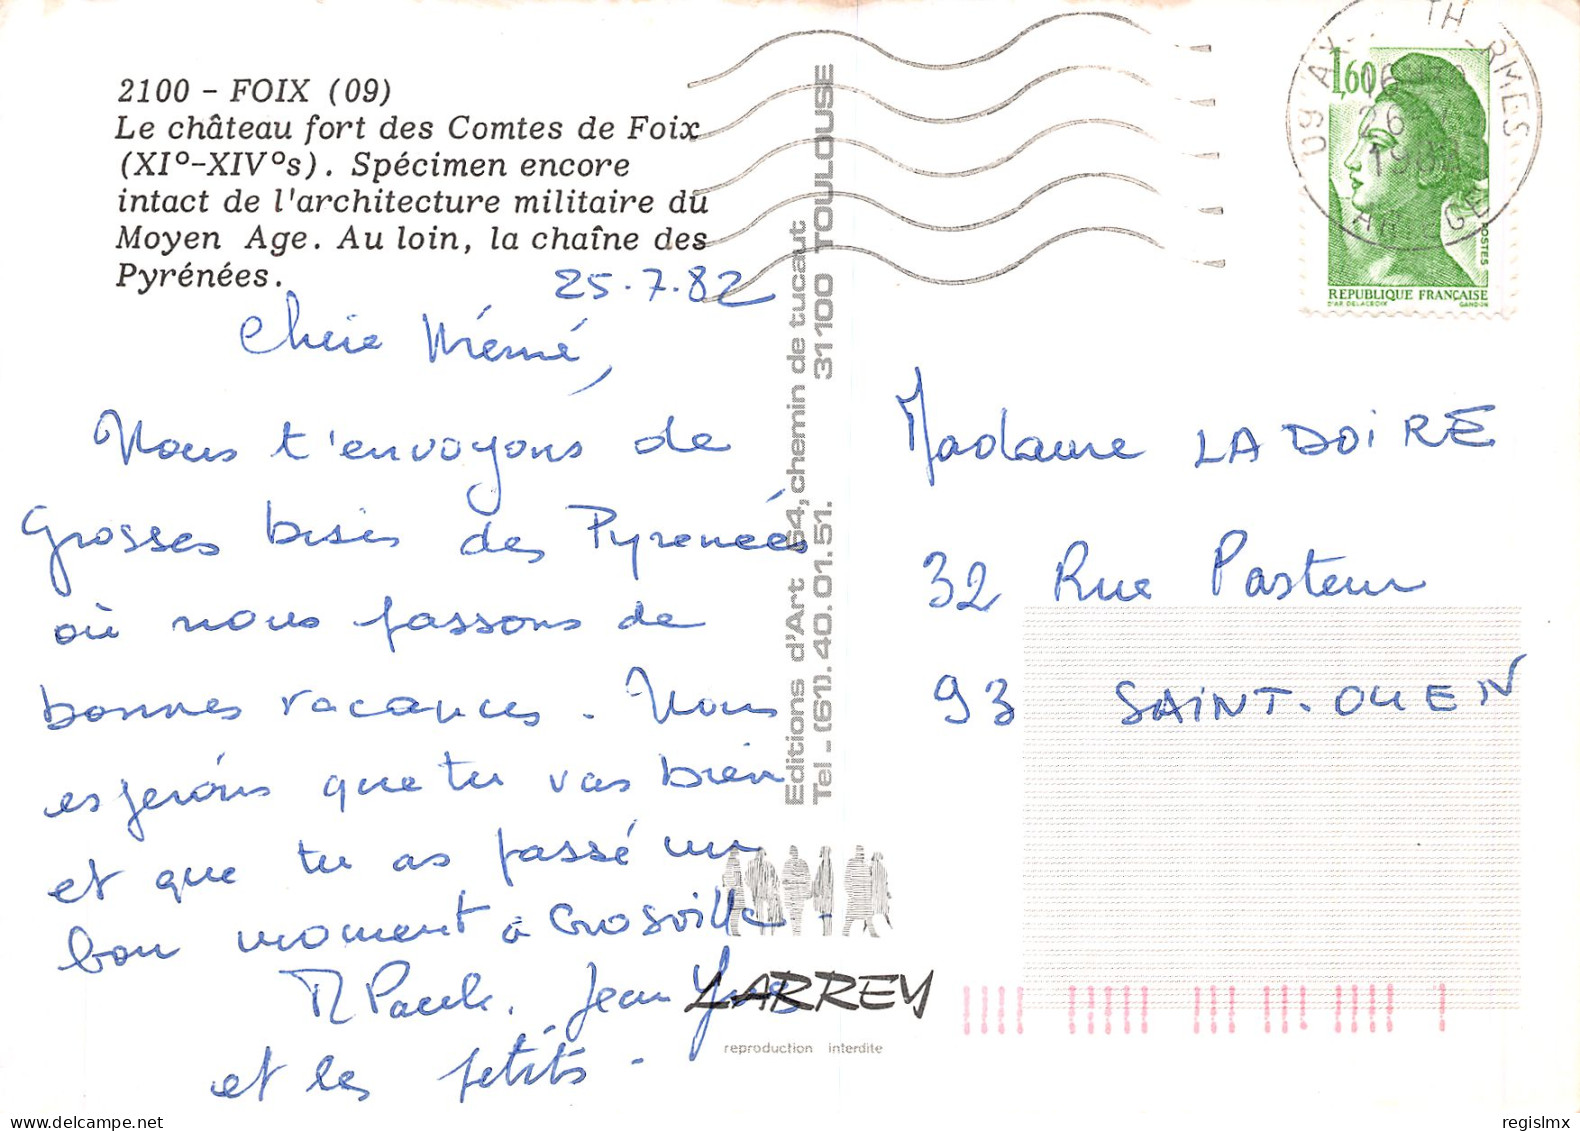 2100 - FOIX (09)
Le château fort des Comtes de Foix
(XI°-XIV°s). Spécimen encore
intact de l'architecture militaire du
Moyen Age. Au loin, la chaîne des
Pyrénées.
25.7.82
Chère Mémé,
Nous t'envoyons de
grosses bises des Pyrenées
où nous passons de
bonnes vacances. Nous
esperons que tu vas bien
et que tu as passé un
bon moment à Crosville.
Paule, Jean Yves
et les petits.
Editions d'Art 64, chemin de tucaut
Tel - (61). 40. 01. 51. 31100 TOULOUSE
LARREY
reproduction interdite
1,60
POSTES
REPUBLIQUE FRANÇAISE
D'AP. DELACROIX GANDON
09 AX TH RMES
26-7
Madame LADOIRE
32 Rue Pasteur
93 SAINT-OUEN
www.delcampe.net
regislmx